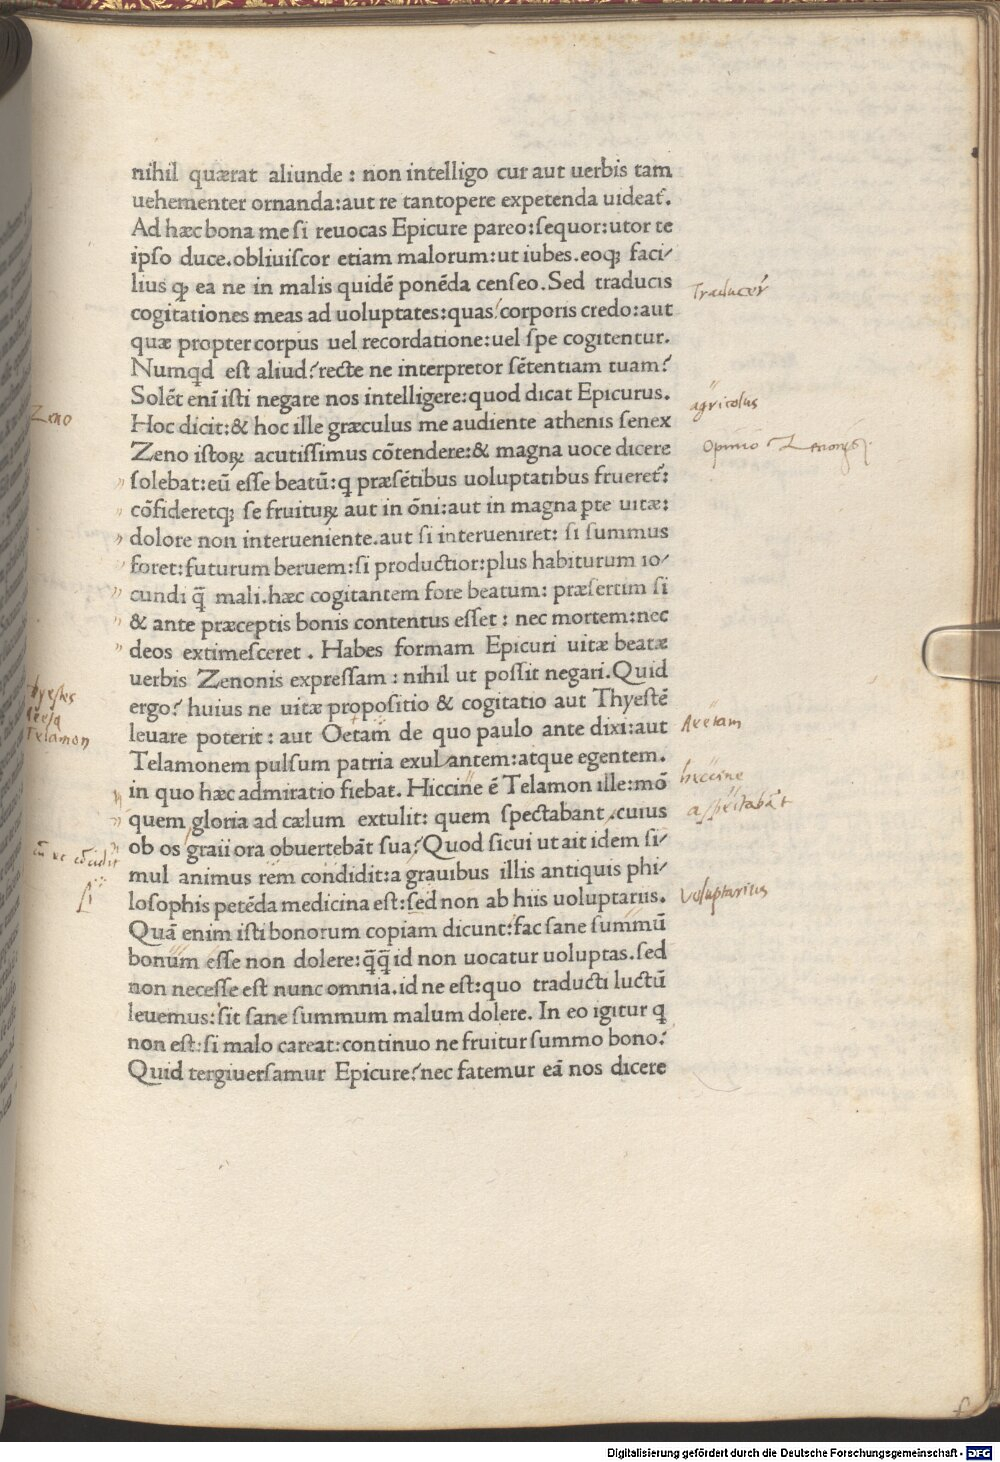 nihil quærat aliunde : non intelligo cur aut uerbis tam
uehementer ornanda:aut re tantopere expetenda uideat̃.
Ad hæc bona me ſi reuocas Epicure pareo:ſequor:utor te
ipſo duce.obliuiſcor etiam malorum:ut iubes.eoqꝫ faci/
lius ꝙ ea ne in malis quidē ponēda cenſeo.Sed traducis
cogitationes meas ad uoluptates:quas?corporis credo:aut
quæ propter corpus uel recordatione:uel ſpe cogitentur.
Numqd est aliud?recte ne interpretor sētentiam tuam?
Solēt enī iſti negare nos intelligere:quod dicat Epicurus.
Hoc dicit:& hoc ille græculus me audiente athenis ſenex
Zeno iſtoꝝ acutiſſimus cōtendere:& magna uoce dicere
ſolebat:eū eſſe beatū:q præſētibus uoluptatibus frueret̃:
cōfideretqꝫ ſe fruituꝝ aut in ōni:aut in magna ꝑte uitæ:
dolore non interueniente.aut ſi interueniret: ſi ſummus
foret:futurum breuem:ſi productior:plus habiturum io/
cundi q̄ mali.hæc cogitantem fore beatum: præſertim ſi
& ante præceptis bonis contentus eſſet : nec mortem:nec
deos extimeſceret . Habes formam Epicuri uitæ beatæ
uerbis Zenonis expreſſam : nihil ut poſſit negari.Quid
ergo? huius ne uitæ propoſitio & cogitatio aut Thyeſtē
leuare poterit : aut Oetam de quo paulo ante dixi:aut
Telamonem pulſum patria exulantem:atque egentem.
in quo hæc admiratio fiebat. Hiccine ē Telamon ille:mō
quem gloria ad cælum extulit: quem ſpectabant.cuius
ob os graii ora obuertebāt ſua?Quod ſicui ut ait idem ſi/
mul animus rem condidit:a grauibus illis antiquis phi/
loſophis petēda medicina est:ſed non ab hiis uoluptariis.
Quā enim iſti bonorum copiam dicunt:fac ſane ſummū
bonum eſſe non dolere:q̄q̄ id non uocatur uoluptas.ſed
non neceſſe est nunc omnia.id ne est:quo traducti luctū
leuemus:ſit ſane ſummum malum dolere. In eo igitur q
non est:ſi malo careat:continuo ne fruitur ſummo bono?
Quid tergiuerſamur Epicure?nec fatemur eā nos dicere
Traducer
agricolus
Zeno
Opinio Zenonis
thyestes
Aeeta
Telamon
Aeetam
hiccine
aspectabāt
voluptarius
Digitalisierung gefördert durch die Deutsche Forschungsgemeinschaft - DFG